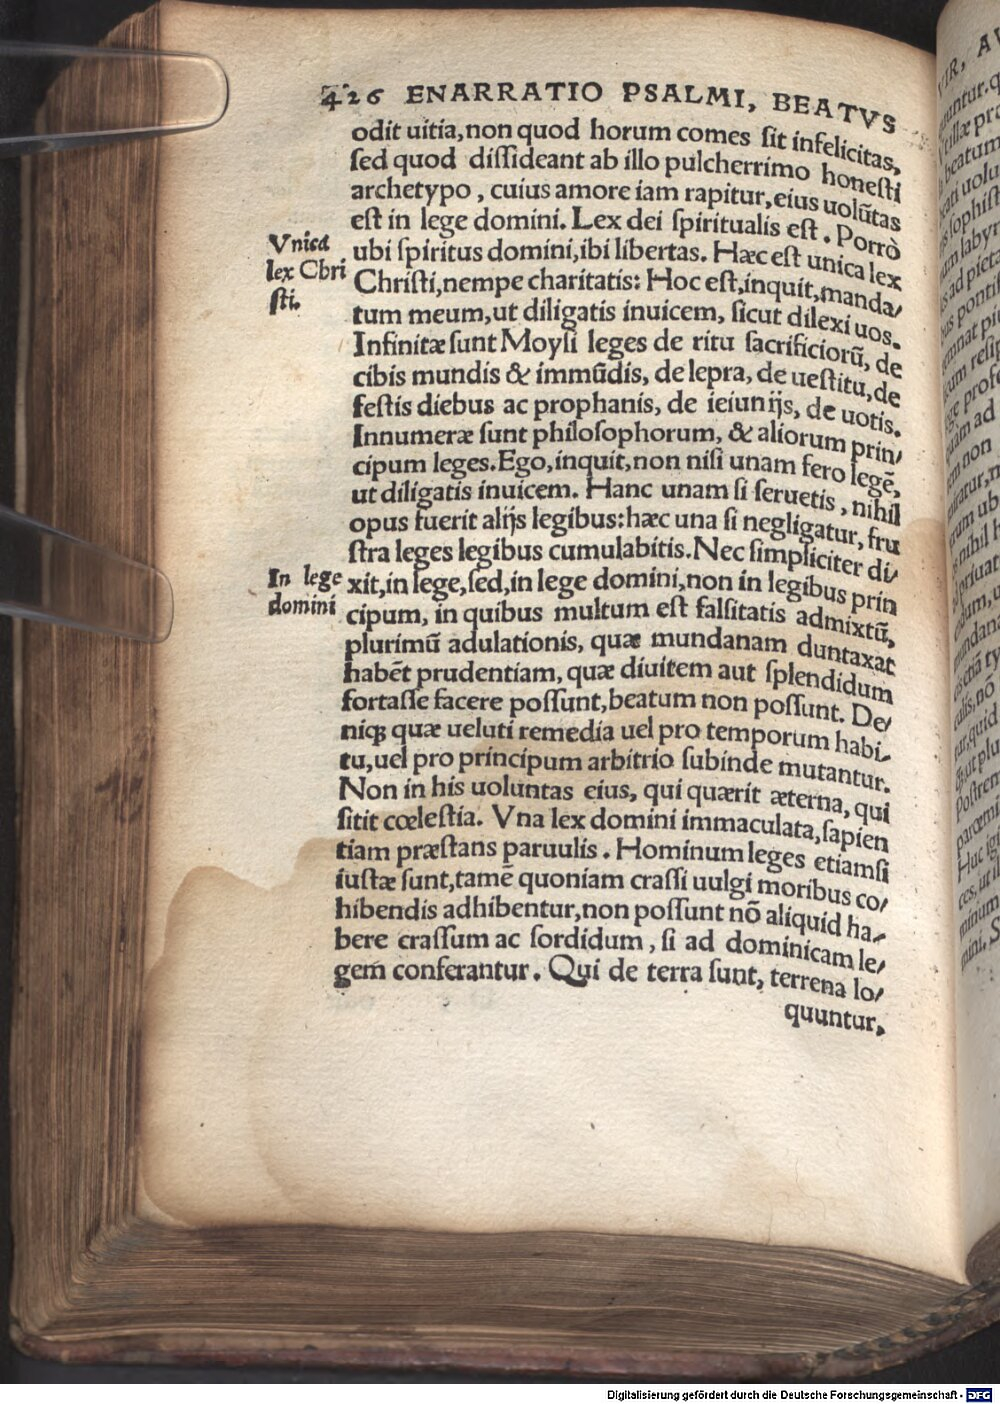 426 ENARRATIO PSALMI, BEATVS
odit uitia, non quod horum comes sit infelicitas,
sed quod dissideant ab illo pulcherrimo honesti
archetypo, cuius amore iam rapitur, eius uolūtas
est in lege domini. Lex dei spiritualis est. Porrò
ubi spiritus domini, ibi libertas. Hæc est unica lex
Christi, nempe charitatis: Hoc est, inquit, manda/
tum meum, ut diligatis inuicem, sicut dilexi uos.
Infinitæ sunt Moysi leges de ritu sacrificiorū, de
cibis mundis & immūdis, de lepra, de uestitu, de
festis diebus ac prophanis, de ieiunijs, de uotis.
Innumeræ sunt philosophorum, & aliorum prin/
cipum leges. Ego, inquit, non nisi unam fero legē,
ut diligatis inuicem. Hanc unam si seruetis, nihil
opus fuerit alijs legibus: hæc una si negligatur, fru
stra leges legibus cumulabitis. Nec simpliciter di/
xit, in lege, sed, in lege domini, non in legibus prin
cipum, in quibus multum est falsitatis admixtū,
plurimū adulationis, quæ mundanam duntaxat
habēt prudentiam, quæ diuitem aut splendidum
fortasse facere possunt, beatum non possunt. De/
niqꝫ quæ ueluti remedia uel pro temporum habi/
tu, uel pro principum arbitrio subinde mutantur.
Non in his uoluntas eius, qui quærit æterna, qui
sitit cœlestia. Vna lex domini immaculata, sapien
tiam præstans paruulis. Hominum leges etiamsi
iustæ sunt, tamē quoniam crassi uulgi moribus co/
hibendis adhibentur, non possunt nō aliquid ha/
bere crassum ac sordidum, si ad dominicam le/
gem conferantur. Qui de terra sunt, terrena lo/
quuntur,
Vnica
lex Chri
sti.
In lege
domini
VIR, AV
Digitalisierung gefördert durch die Deutsche Forschungsgemeinschaft - DFG